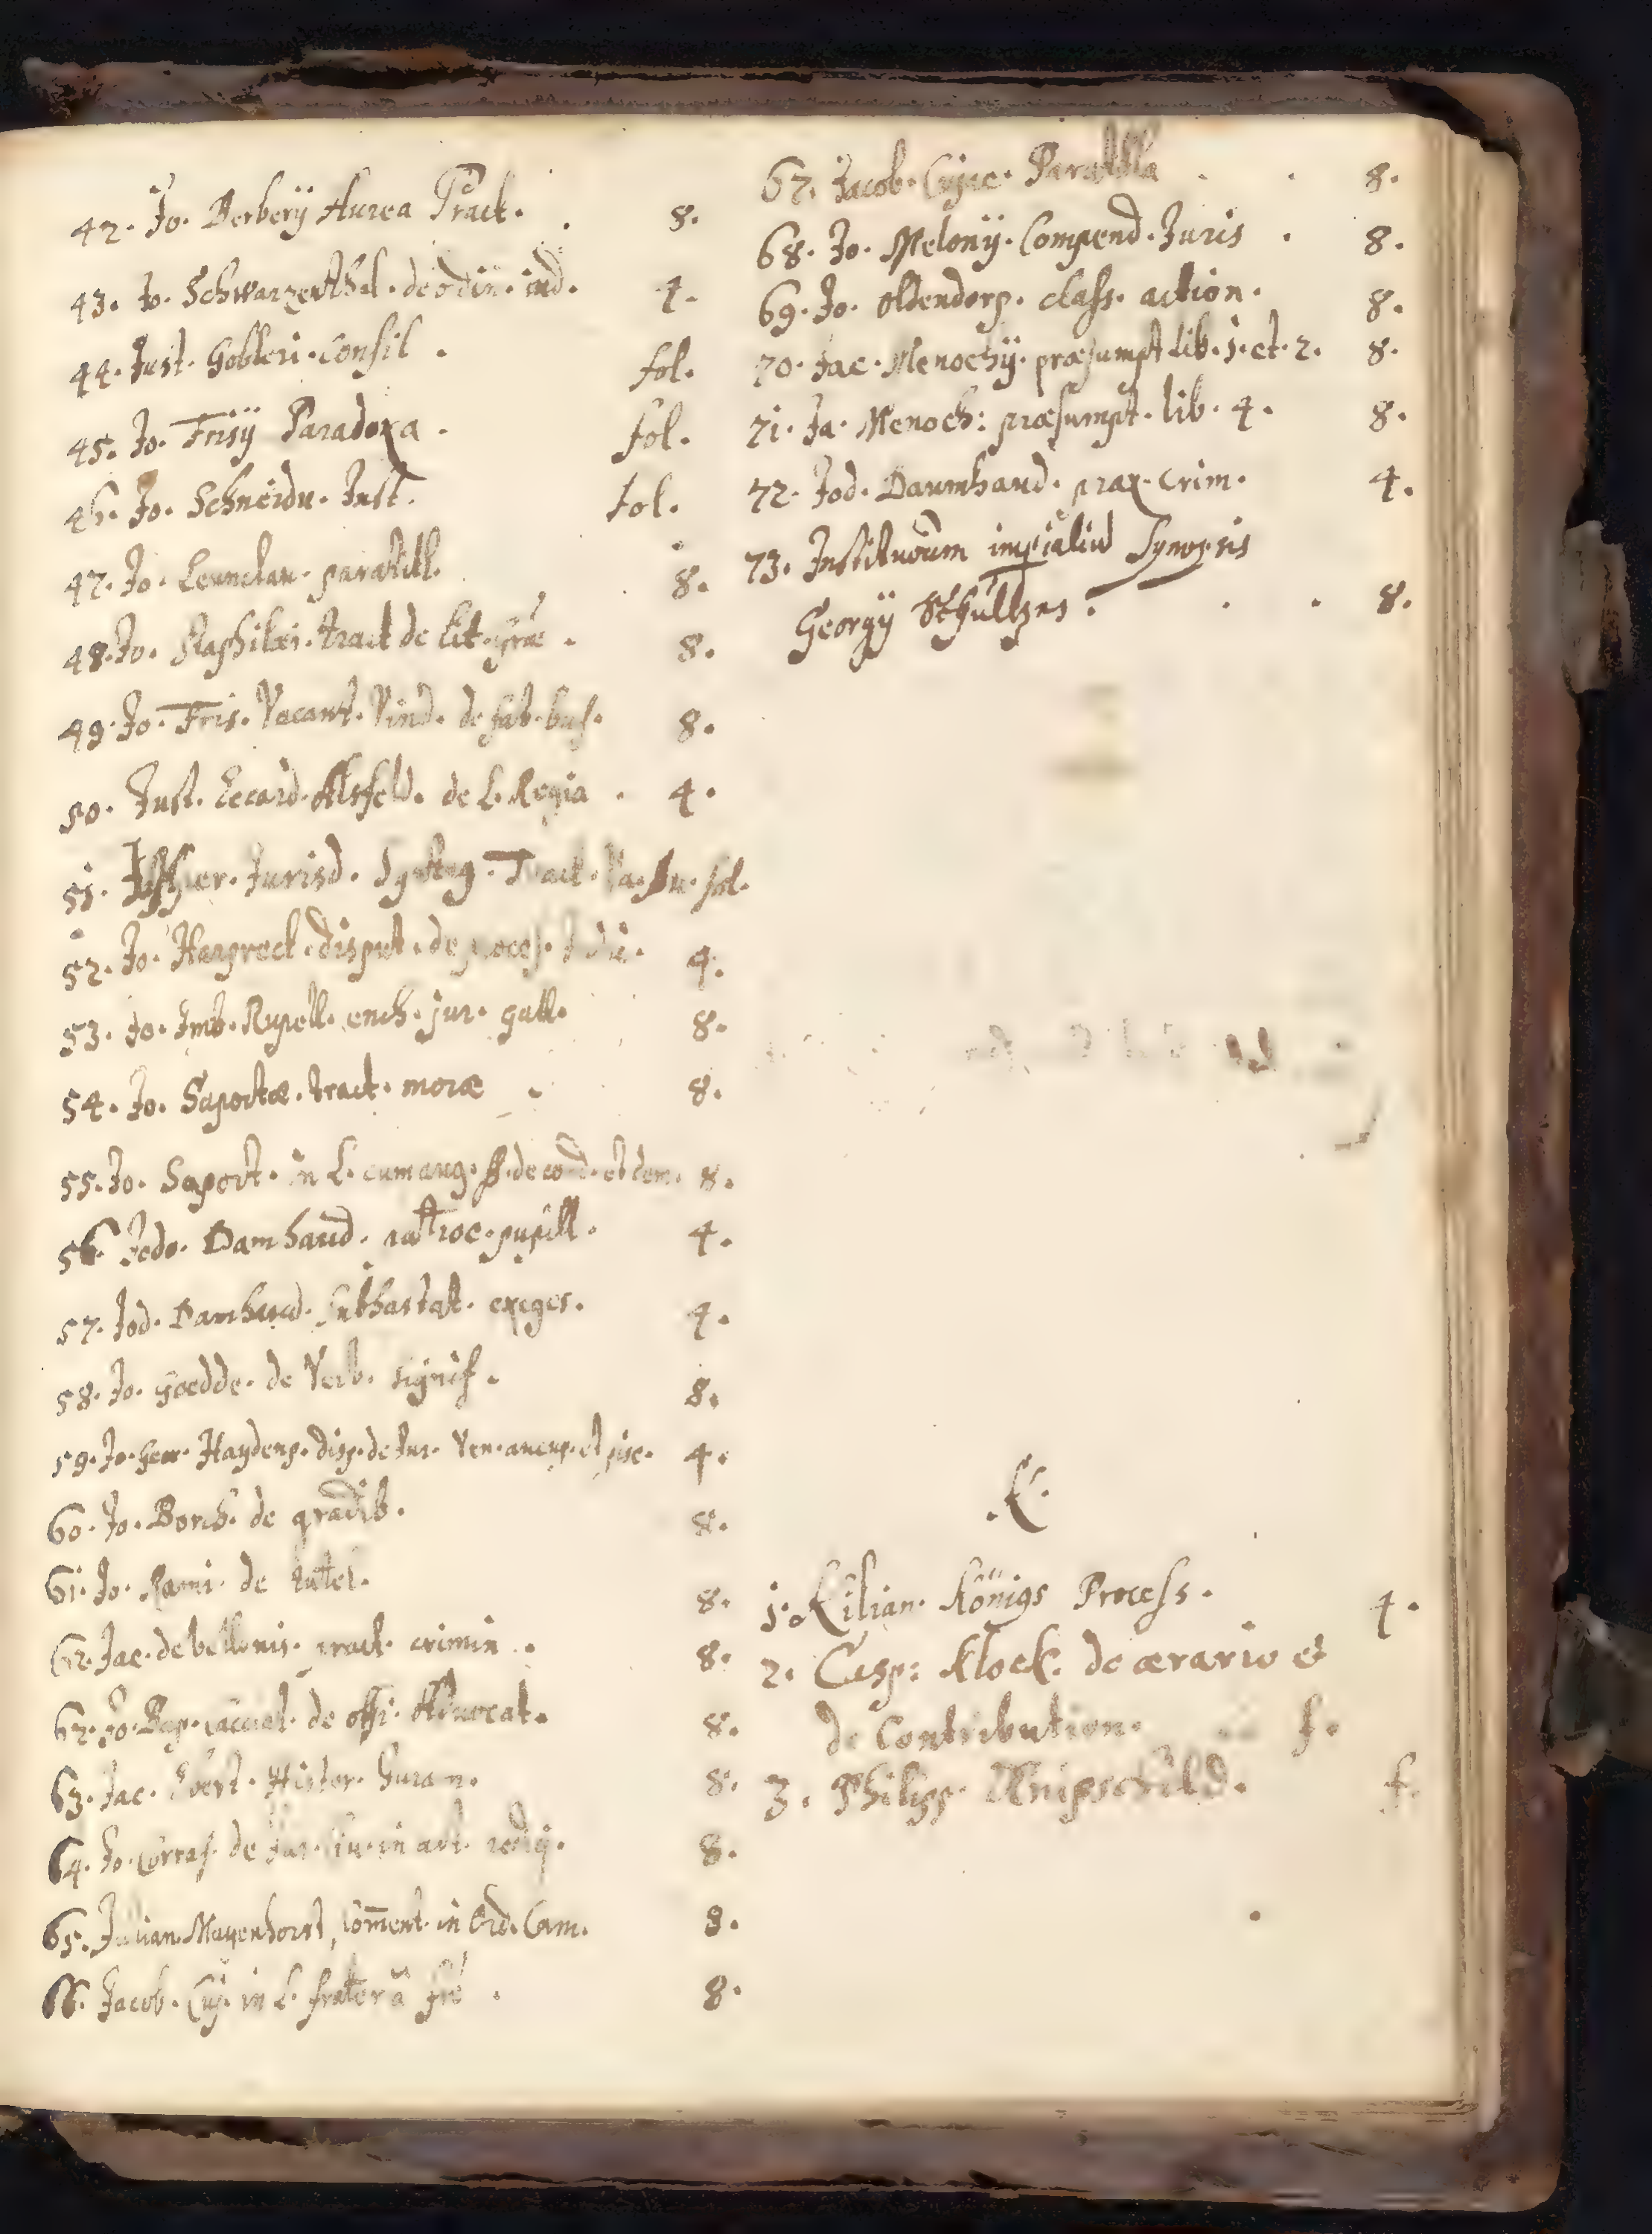 42. Jo. Berberÿ Aurea Pract. 8.
43. Jo. Schwarzenthal. de ordin. iud. 4.
44. Just. Gobleri. Consil. fol.
45. Jo. Frisÿ Paradoxa. fol.
46. Jo. Schneidu. Inst. fol.
47. Jo. Leunclau. paratitll. 8.
48. Jo. Staphilæi. tract de lit. 8.
49. Jo. Fris. Vacant. Vind. de 8.
50. Just. Eccard. Alsfeld. de L. Regia. 4.
51. Jurisd. Syntag. Tract. fol.
52. Jo. Harpreck. disput. de proces. 4.
53. Jo. Imb. Rupell. ench. jur. gall. 8.
54. Jo. Saportæ. tract. moræ 8.
55. Jo. Saport. in L. cum aug. ff. de cond. et dem. 8.
56. Jodo. Damhaud. patroc. pupill. 4.
57. Jod. Damhaud. subhastat. exeges. 4.
58. Jo. Goedde. de Verb. signif. 8.
59. Jo. Haydenp. disp. de Jur. Ven. aucup. et pisc. 4.
60. Jo. Borch. de gradib. 8.
61. Jo. Rami. de tutel. 8.
62. Jac. de bellonis. pract. crimin. 8.
62. Jo. Bap. de offi. Advocat. 8.
63. Jac. Histor. Juram. 8.
64. Jo. Corras. de Jur. in art. redig. 8.
65. Julian. Mayenhorst, Com̅ent. in Ord. Cam. 8.
66. Jacob. Cuj. in L. frater à frē. 8.
67. Jacob. Cujac. Paratitla 8.
68. Jo. Melonÿ. Compend. Juris 8.
69. Jo. Oldendorp. class. action. 8.
70. Jac. Menochÿ. præsumpt lib. 1. et. 2. 8.
71. Ja. Menoch: præsumpt. lib. 4. 8.
72. Jod. Daumhaud. prax. crim. 4.
73. Synopsis
Georgÿ Schultzes. 8.
K.
1. Kilian. Königs Process. 4.
2. Casp: Klock. de ærario et
de Contribution. f.
3. Philipp. Knipschild. f.